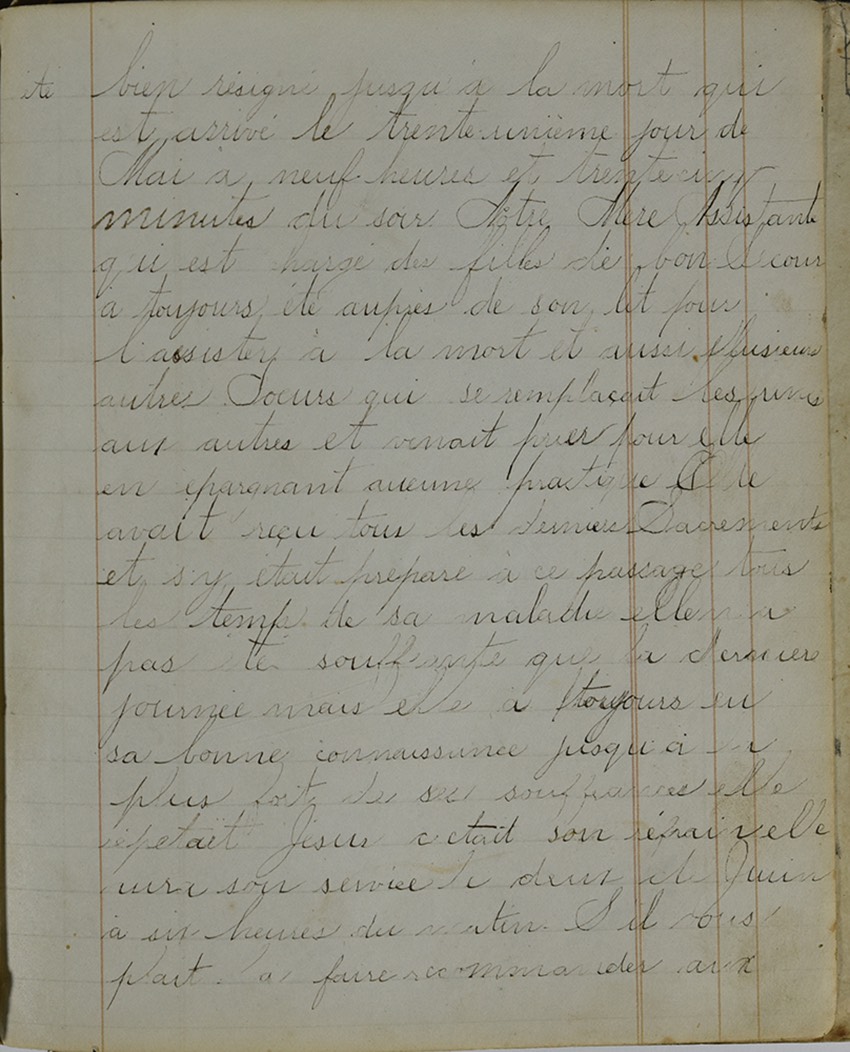 bien résigné jusqu'à la mort qui
est arrivé le trente-unième jour de
Mai à neuf heures et trente cinq
minutes du soir Notre Mère Assistante
qui est chargé des filles de bon Secour
a toujours été auprès de son lit pour
l'assister à la mort et aussi plusieurs
autres Soeurs qui se remplaçait les unes
aux autres et venait prier pour elle
en épargnant aucune pratique Elle
avait reçu tous les derniers Sacrements
et s'y était préparé à ce passage tous
les temps de sa maladie elle n'a
pas été souffrante que la dernière
journée mais elle a toujours eu
sa bonne connaissance jusqu'à la
plus forte de ses souffrances elle
répetait Jésus c'était son réfrain elle
aura son service le deux de Juin
à six heures du matin. S'il vous
plait la faire recommander aux